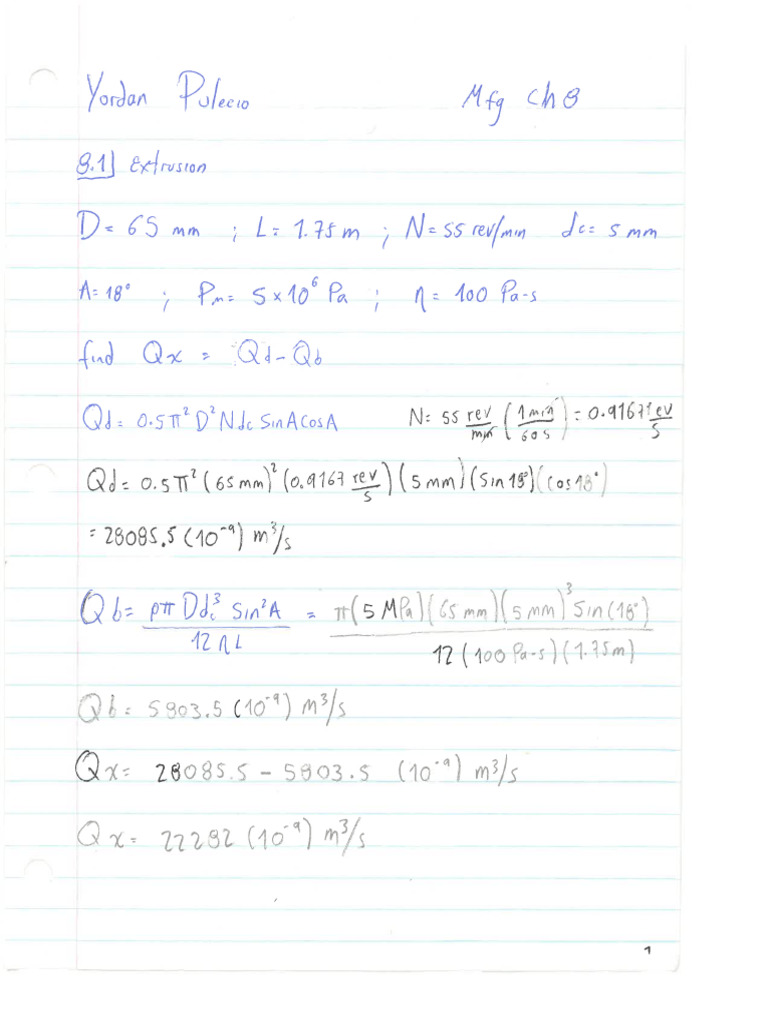 Yordan Pulecio Mfg Ch 8
8.1] Extrusion
D = 65 mm ; L = 1.75 m ; N = 55 rev/min dc = 5 mm
A = 18° ; Pm = 5 × 10⁶ Pa ; η = 100 Pa-s
find Qx = Qd - Qb
Qd = 0.5 π² D² N dc Sin A Cos A N = 55 rev/min (1 min/60 s) = 0.9167 rev/s
Qd = 0.5 π² (65 mm)² (0.9167 rev/s) (5 mm) (Sin 18°) (cos 18°)
= 28085.5 (10⁻⁹) m³/s
Qb = pπ D dc³ Sin² A / 12 η L = π (5 MPa) (65 mm) (5 mm)³ Sin (18°) / 12 (100 Pa-s) (1.75 m)
Qb = 5803.5 (10⁻⁹) m³/s
Qx = 28085.5 - 5803.5 (10⁻⁹) m³/s
Qx = 22282 (10⁻⁹) m³/s
1